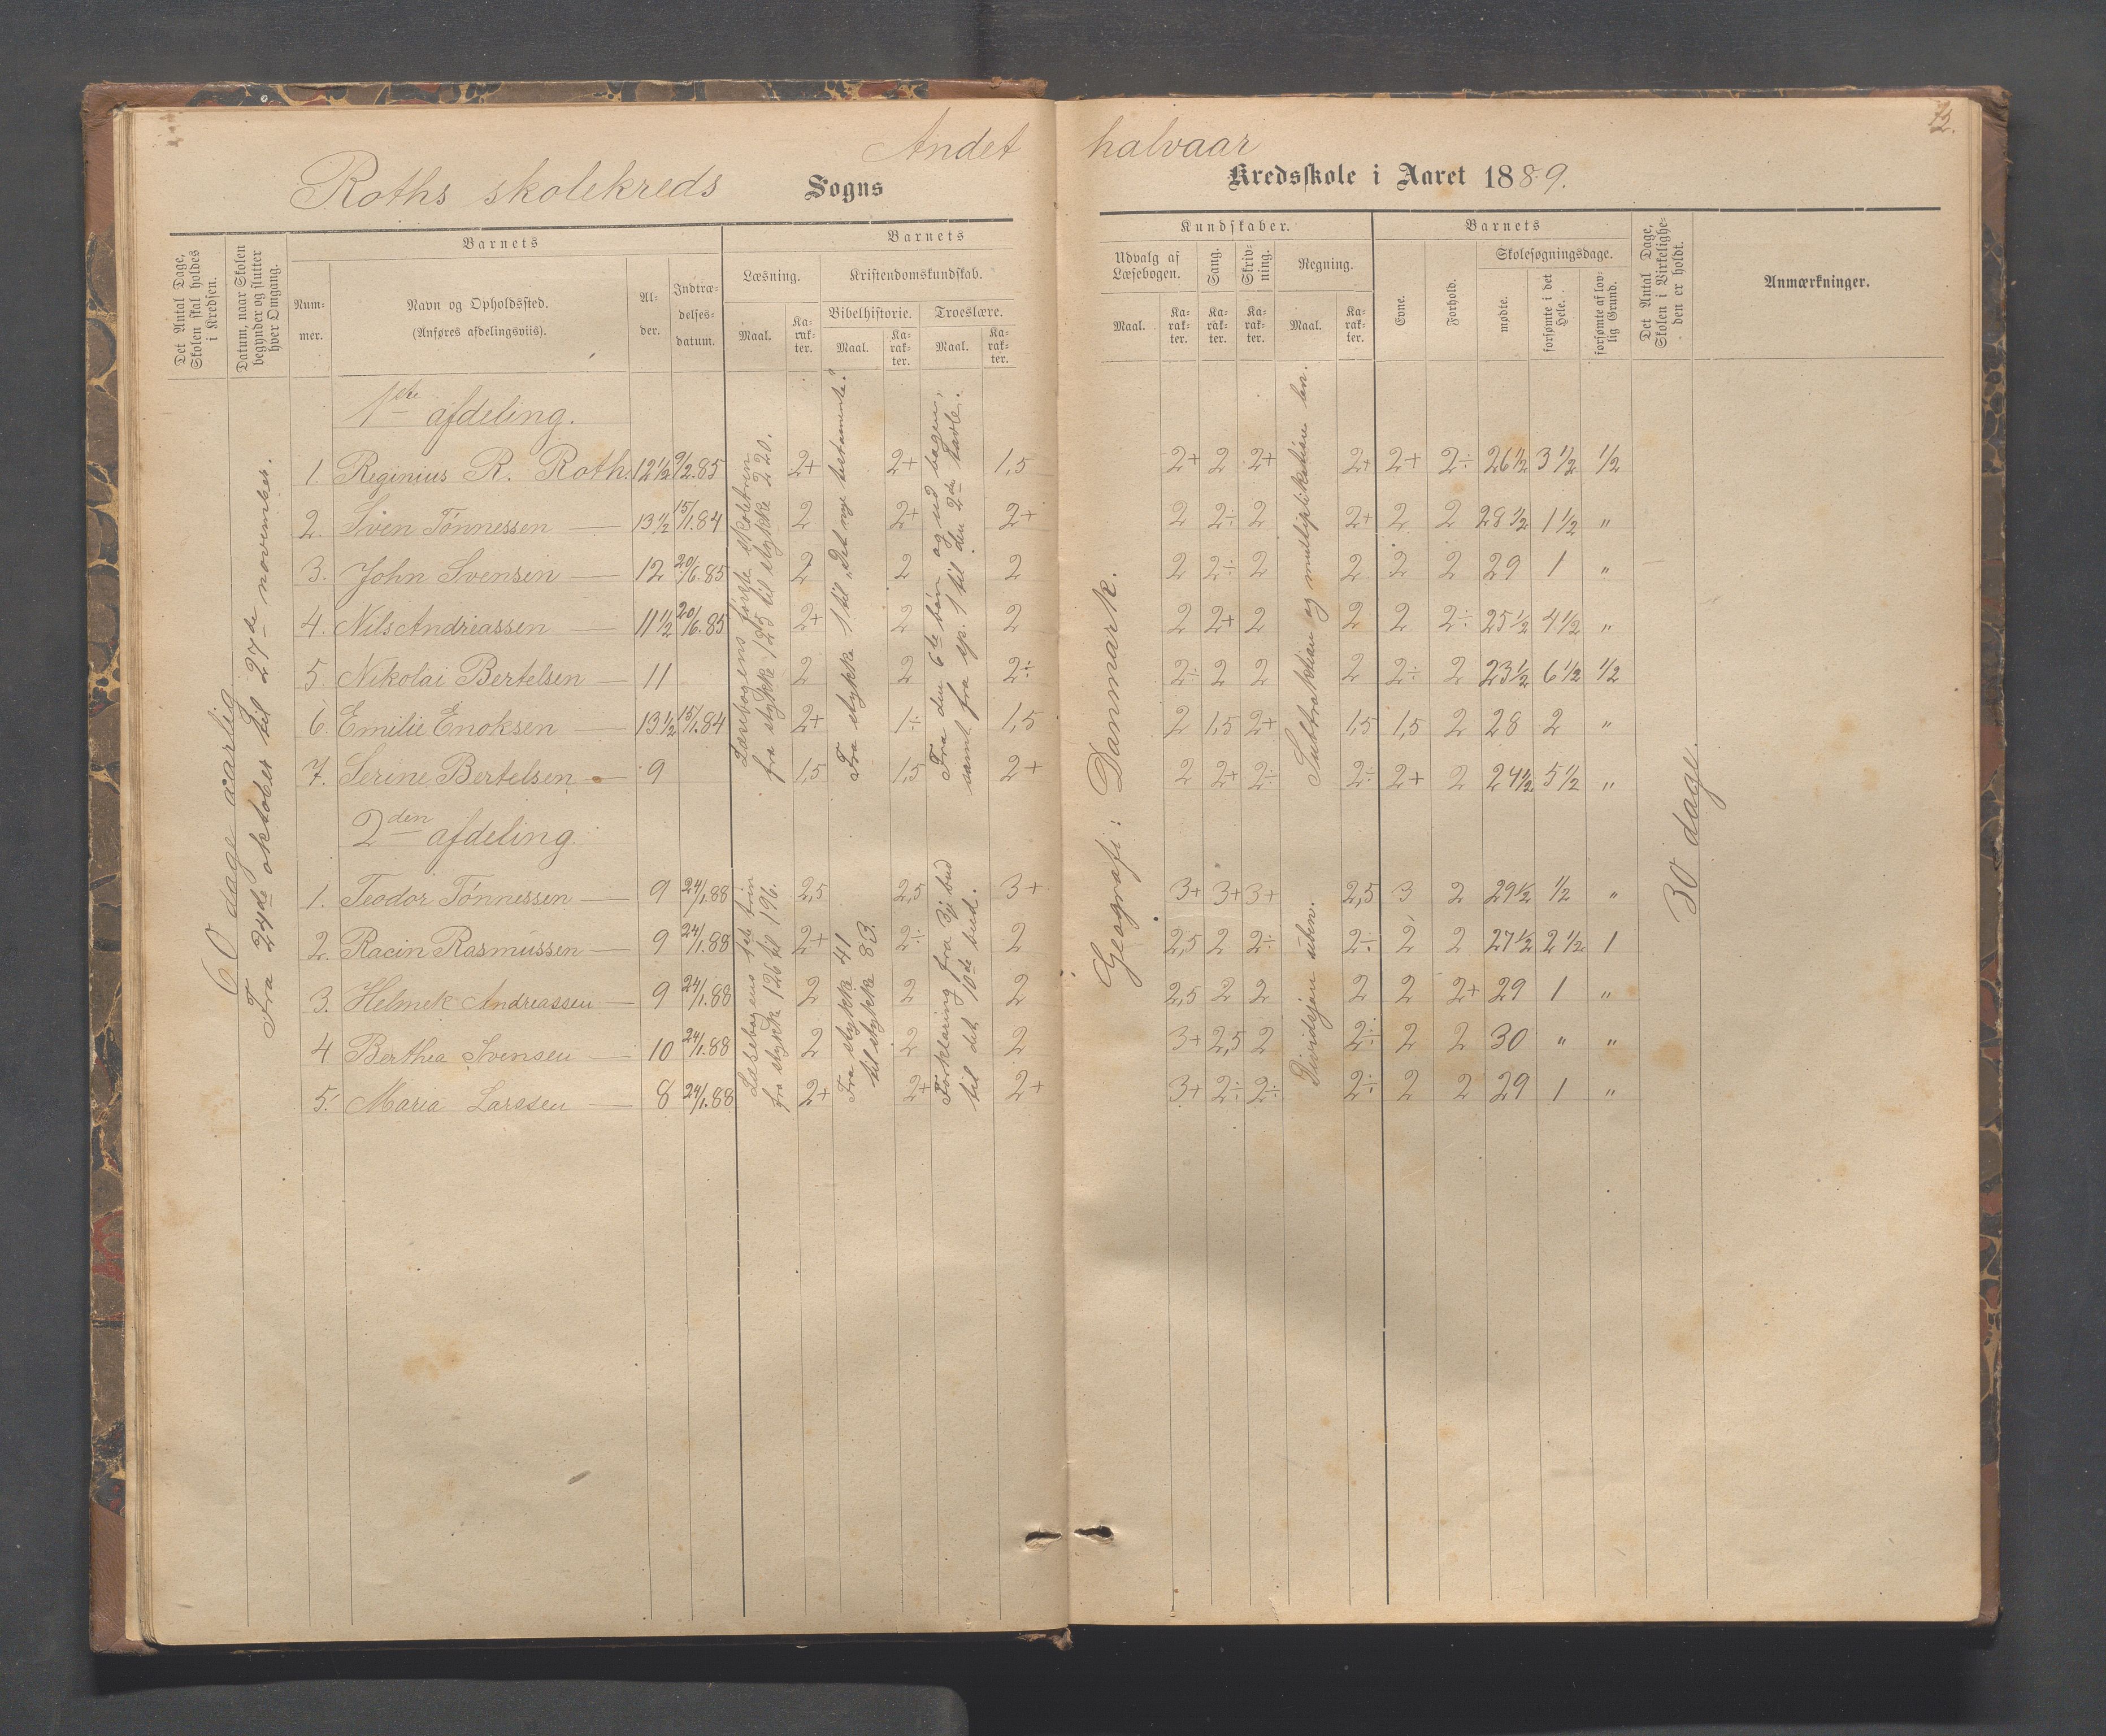 Andet halvaar
72.
Roths skolekreds Sogns Kredsskole i Aaret 1889.
Det Antal Dage, Skolen skal holdes i Kredsen.
Datum, naar Skolen begynder og slutter hver Omgang.
Barnets
Num-
mer.
Navn og Opholdssted.
(Anføres afdelingsviis).
Al-
der.
Indtræ-
delses-
datum.
Barnets
Læsning.
Maal.
Ka-
rak-
ter.
Kristendomskundskab.
Bibelhistorie.
Maal.
Ka-
rak-
ter.
Troeslære.
Maal.
Ka-
rak-
ter.
Kundskaber.
Udvalg af
Læsebogen.
Maal.
Ka-
rak-
ter.
Sang.
Ka-
rak-
ter.
Skriv-
ning.
Ka-
rak-
ter.
Regning.
Maal.
Ka-
rak-
ter.
Barnets
Evne.
Forhold.
Skolesøgningsdage.
mødte.
forsømte i det Hele.
forsømte af lov-
lig Grund.
Det Antal Dage,
Skolen i Virkelighe-
den er holdt.
Anmærkninger.
60 dage aarlig
Fra 2den oktober til 27de november.
1ste afdeling.
1. Reginius R. Roth. 12 1/2 9/2.85 2+ 2+ 1,5 2+ 2 2+ 2+ 2+ 2÷ 26 1/2 3 1/2 1/2
2. Sven Tønnessen — 13 1/2 15/1.84 2 2+ 2+ 2 2÷ 2 2+ 2 2 28 1/2 1 1/2 "
3. John Svensen — 12 20/6.85 2 2 2 2 2÷ 2 2 2 2 29 1 "
4. Nils Andreassen — 11 1/2 20/6.85 2+ 2 2 2 2+ 2 2 2 2÷ 25 1/2 4 1/2 "
5. Nikolai Bertelsen — 11 2 2 2÷ 2÷ 2 2 2 2÷ 2 23 1/2 6 1/2 1/2
6. Emilie Enoksen — 13 1/2 15/1.84 2+ 1÷ 1,5 2 1,5 2+ 1,5 1,5 2 28 2 "
7. Serine Bertelsen — 9 1,5 1,5 2+ 2 2+ 2÷ 2÷ 2+ 2 24 1/2 5 1/2 "
Læsebogens første skoletrin
fra stykke 125 til stykke 220.
Fra stykke 1 til „Det nye testamente."
Fra den 6te bøn og ud bogen,
samt fra sp. 1 til den 2den tavle.
Suttraktion og multiplikation ben.
Geografi: Danmark.
30 dage.
2den afdeling.
1. Teodor Tønnessen — 9 24/1.88 2,5 2,5 3+ 3+ 3+ 3+ 2,5 3 2 29 1/2 1/2 "
2. Racin Rasmussen — 9 24/1.88 2+ 2÷ 2 2,5 2 2÷ 2÷ 2 2 27 1/2 2 1/2 1
3. Helmek Andreassen — 9 24/1.88 2 2 2 2,5 2 2 2 2 2+ 29 1 "
4 Berthea Svensen — 10 24/1.88 2 2 2 3+ 2,5 2 2÷ 2 2 30 " "
5. Maria Larssen — 8 24/1.88 2+ 2+ 2+ 3+ 2÷ 2÷ 2÷ 2 2 29 1 "
Læsebogens 1ste trin
fra stykke 126 til 196.
Fra stykke 41
til stykke 83.
Forklaring fra 3je bud
til det 10de bud.
Dividsjon uben.